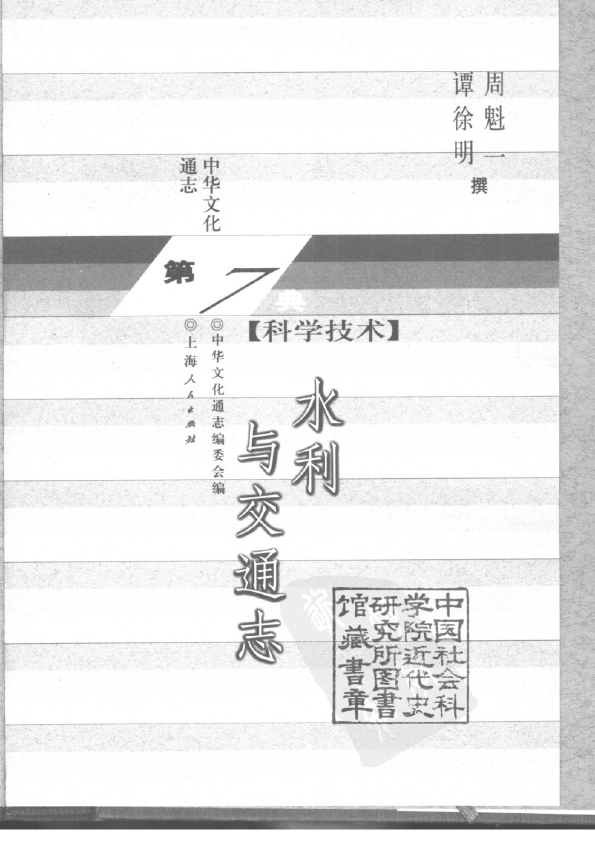 周魁一
谭徐明
撰
中华文化
通志
第7典
【科学技术】
◎中华文化通志编委会编
◎上海人民出版社
水利
与交通志
中国社会科
学院近代史
研究所图书
馆藏書章